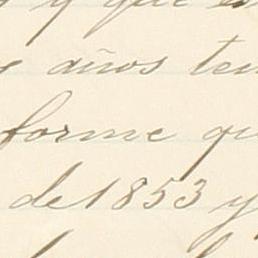 y que
años ten
forme qu
de 1853 y